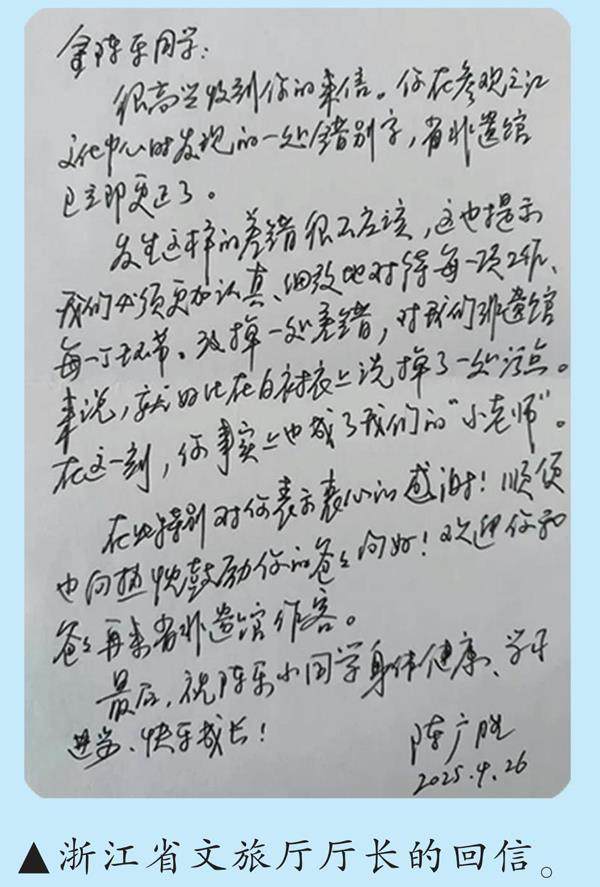 金陈乐同学：
很高兴收到你的来信。你在参观之江
文化中心时发现的一处错别字，省非遗馆
已立即更正了。
发生这样的差错很不应该，这也提示
我们必须更加认真、细致地对待每一项工作、
每一个环节。改掉一处差错，对我们非遗馆
来说，就好比在白衬衣上洗掉了一处污点。
在这一刻，你事实上也成了我们的“小老师”。
在此特别对你表示衷心的感谢！顺便
也向热忱鼓励你的爸爸问好！欢迎你和
爸爸再来省非遗馆作客。
最后，祝陈乐小同学身体健康、学习
进步、快乐成长！
陈广胜
2025.4.26
▲浙江省文旅厅厅长的回信。